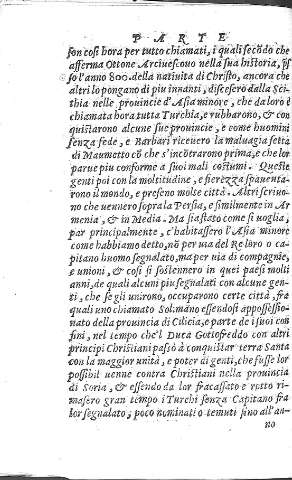 PARTE
son cosi hora per tutto chiamati, i quali secõdo che
afferma Ottone Arciuescouo nella sua historia, p̃s
so l'anno 800. della natiuita di Christo, ancora che
altri lo pongano di piu innanti, discesero dalla Sci
thia nelle prouincie d'Asia minore, che da loro è
chiamata hora tutta Turchia, e rubbarono, & con
quistarono alcune sue prouincie, e come huomini
senza fede, e Barbari riceuero la maluagia setta
di Maumetto cõ che s'incõtrarono prima, e che lor
parue piu conforme a suoi mali costumi. Queste
genti poi con la moltitudine, e fierezza spauenta-
rono il mondo, e presono molte città. Altri scriuo-
no che uennero sopra la Persia, e similmente in Ar
menia, & in Media. Ma sia stato come si uoglia,
par principalmente, c'habitassero l'Asia minore
come habbiamo detto, nõ per uia del Re loro o ca-
pitano huomo segnalato, ma per uia di compagnie,
e unioni, & cosi si sostennero in quei paesi molti
anni, de quali alcuni piu segnalati con alcune gen-
ti, che se gli unirono, occuparono certe città, fra
quali uno chiamato Solimano essendosi appossessio-
nato della prouincia di Cilicia, e parte de i suoi con
fini, nel tempo che'l Duca Gottofreddo con altri
principi Christiani passò à conquistar terra Santa
con la maggior unità, e poter di genti, che fusse lor
possibil uenne contra Christiani nella prouincia
di Soria, & essendo da lor fracassato e rotto ri-
masero gran tempo i Turchi senza Capitano fra
lor segnalato, poco nominati o temuti fino all'an-
no